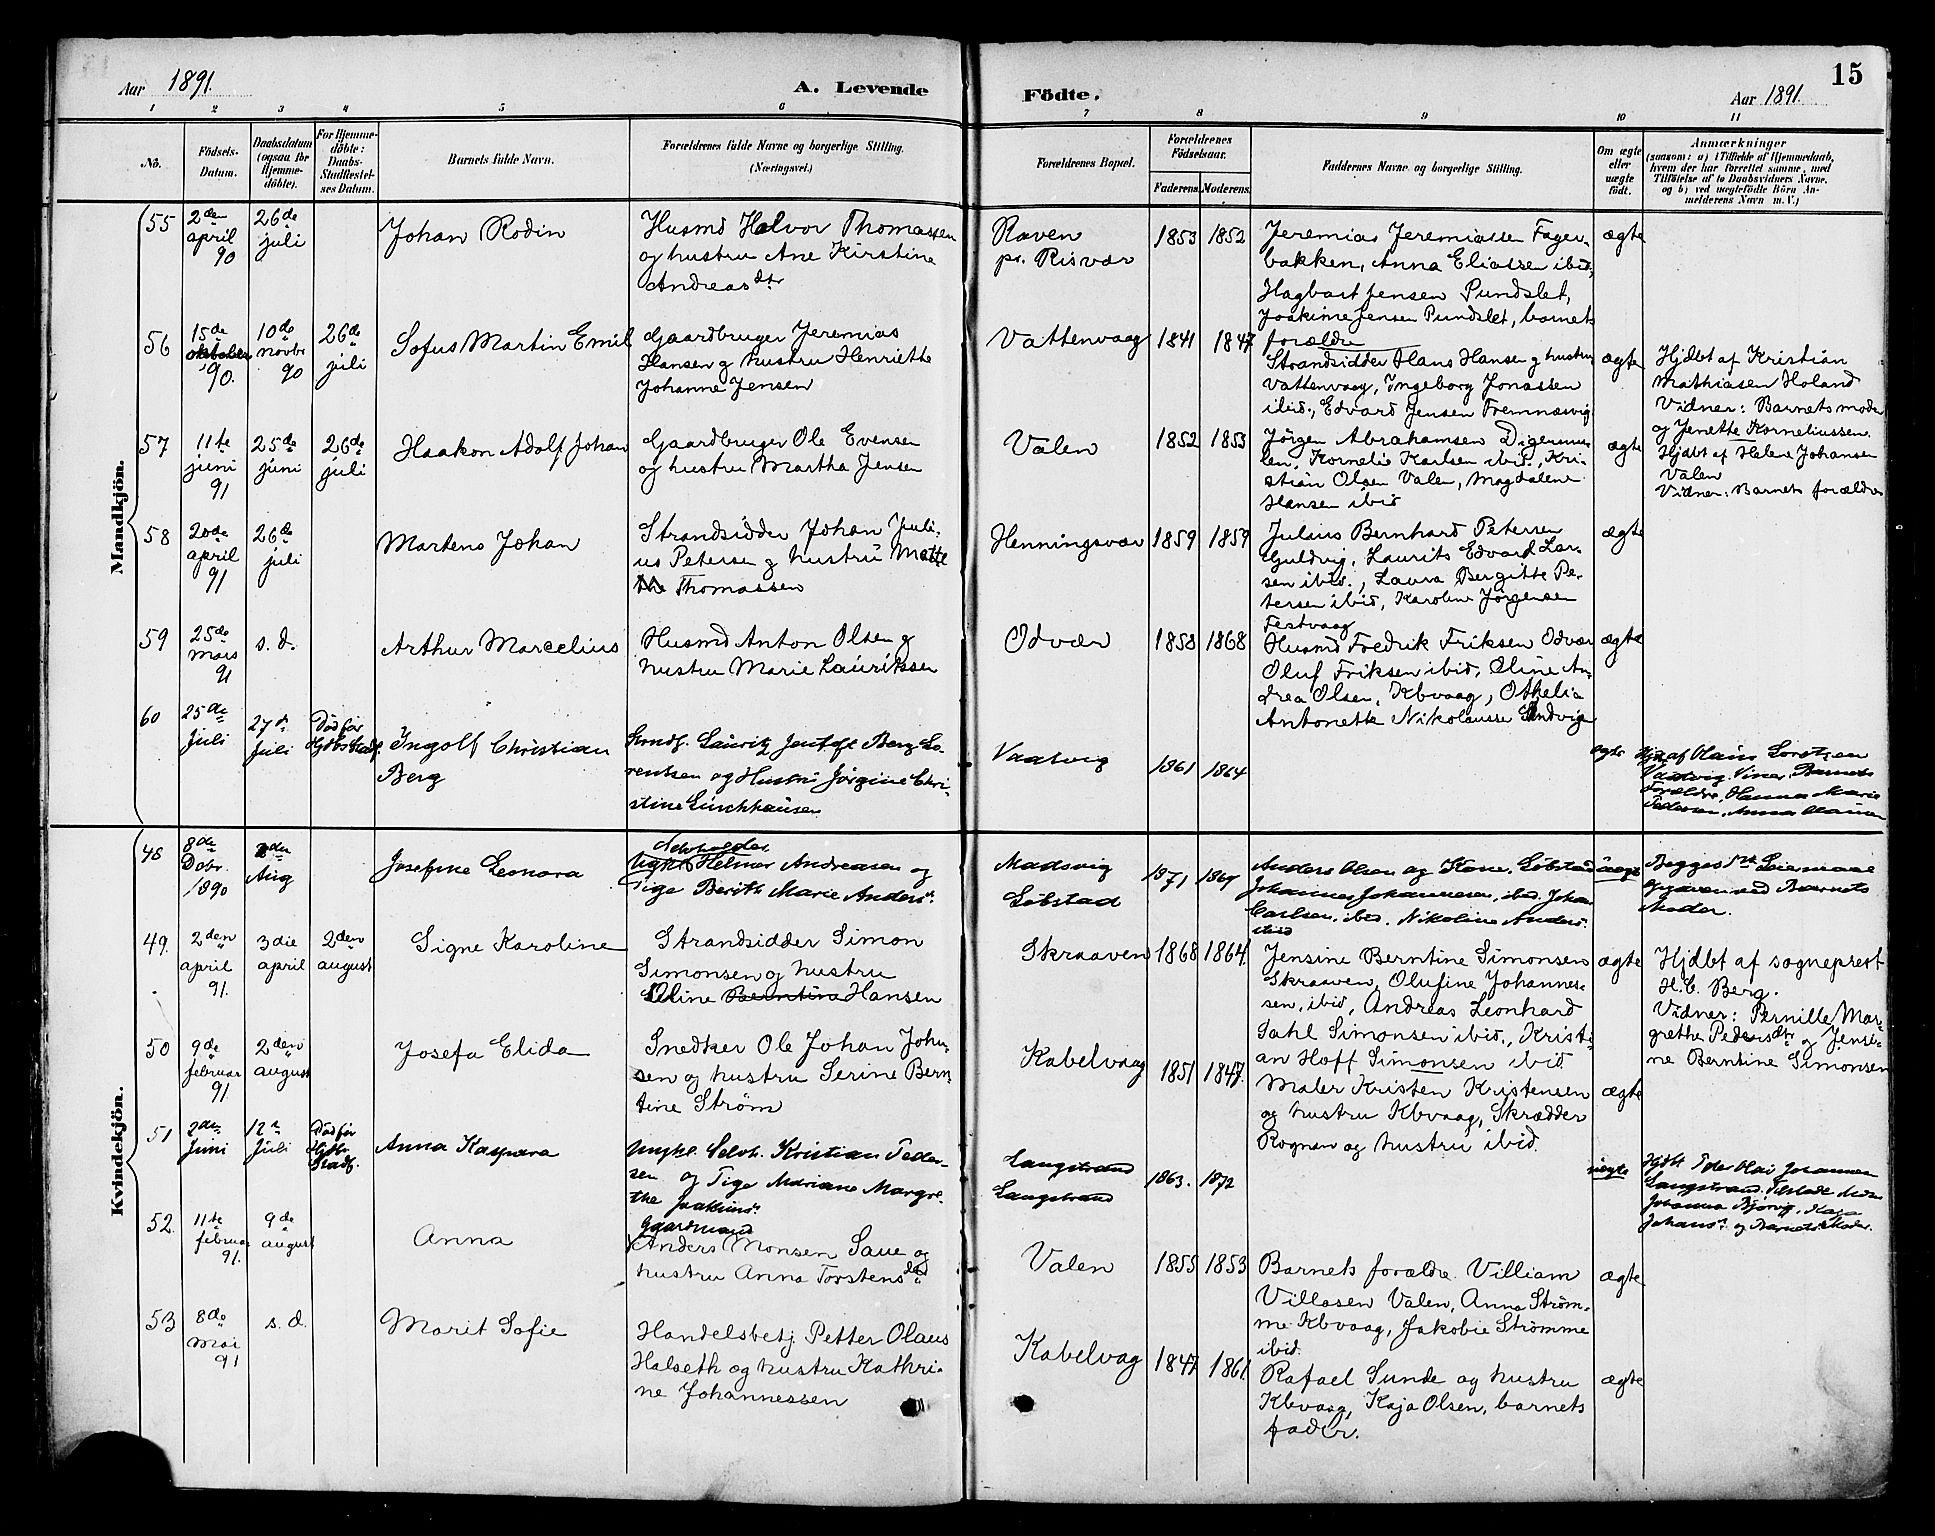 Aar 1891.
A. Levende
Födte.
Aar 1891.
15
1 2 3 4 5 6 7 8 9 10 11
No.
Födsels-
Datum.
Daabsdatum
(ogsaa for
Hjemme-
döbte).
For Hjemme-
döbte:
Daabs-
Stadfæstel-
ses Datum.
Barnets fulde Navn.
Forældrenes fulde Navne og borgerlige Stilling.
(Næringsvei.)
Forældrenes Bopæl.
Forældrenes
Födselsaar.
Faderens. Moderens.
Faddernes Navne og borgerlige Stilling.
Om ægte
eller
uægte
födt.
Anmærkninger
(saasom: a) i Tilfælde af Hjemmedaab,
hvem der har forrettet samme, med
Tilföielse af to Daabsvidners Navne,
og b) ved uægtefödte Börn An-
melderens Navn m. V.)
Mandkjön.
55
2den
april
90
26de
juli
Johan Rodin
Husmd Halvor Thomassen
og hustru Ane Kirstine
Andreasdtr
Raven
pr. Risvær
1853 1852
Jeremias Jeremiassen Fager-
bakken, Anna Eliassen ibid,
Hagbart Jensen Pundslet,
Joakime Jensen Pundslet, barnets
forældre
ægte
56
15de
oktober
90.
10de
novbr
90
26de
juli
Sofus Martin Emil
Gaardbruger Jeremias
Hansen g hustru Henriette
Johanne Jensen
Vattenvaag
1841 1847
Strandsidder Hans Hansen g hustru
Vattenvaag, Ingeborg Jonassen
ibid., Edvard Jensen Fremnæsvig
ægte
Hjdbt af Kristian
Mathiasen Holand
Vidner: Barnets moder
og Jenette Korneliussen.
57
11te
juni
91
25de
juni
26de
juli
Haakon Adolf Johan
Gaardbruger Ole Evensen
og hustru Martha Jensen
Valen
1852 1853
Jörgen Abrahamsen Digermu-
len, Kornelis Karlsen ibid., Kri-
stian Olsen Valen, Magdalene
Hansen ibid
ægte
Hjdbt af Helene Johansen
Valen
Vidner: Barnets forældre
58
20de
april
91
26de
juli
Martens Johan
Strandsidder Johan Juli-
us Petersen g hustru Mette
Thomassen
Henningsvær
1859 1859
Julius Bernhard Petersen
Guldvig, Laurits Edvard Lar-
sen ibid., Laura Bergitte Pe-
tersen ibid, Karoline Jörgensen
Festvaag
ægte
59
25de
mars
91
s. d.
Arthur Marcelius
Husmd Anton Olsen g
hustru Marie Lauritssen
Odvær
1858 1868
Husmd Fredrik Friksen Odvær
Oluf Friksen ibid, Eline An-
drea Olsen, Kbvaag, Othelia
Antonette Nikolaisse Sandvig
ægte
60
25de
Juli
27de
Juli
Död før
Hjdbs Stadf.
Ingolf Christian
Berg
Lauritz Jentoft Berg Lo-
rentsen og Hustru Jørgine Chri-
stine
Vaatvig
1861 1864
ægte
Hjd af Hans Lorntzen
Vaatvig. Barnets
Forældre, Hanna Marie
Pedersen, Anna
Kvindekjön.
48
8de
Decbr.
1890
2den
Aug
Josefine Leonora
Selvholder
Ungkl Helmer Andreasen og
Pige Berith Marie Andersdt.
Madsvig
Löbstad
1871 1867
Anders Olsen og Kone, Løbstad
Johannes Johannesen, ibd. Johan
Carlsen, ibd. Nikoline Andersd.
ibid
uægte
Begges 1ste Leiermaal
opgaven ved Barnets
Moder.
49.
2den
april
91.
3die
april
2den
august
Signe Karoline
Strandsidder Simon
Simonsen og hustru
Eline Berntina Hansen
Skraaven
1868 1864.
Jensine Berntine Simonsen
Skraaven, Olufine Johannes-
sen, ibid, Andreas Leonhard
Dahl Simonsen ibid., Kristi-
an Hoff Simonsen ibid
ægte
Hjdbt af sogneprest
H. C. Berg.
Vidner: Pernille Mar-
grethe Pedersdtr og Jensi-
ne Berntine Simonsen
50
9de
februar
91
2den
august
Josefa Elida
Snedker Ole Johan Joh-
sen og hustru Serine Bern-
tine Ström
Kabelvaag
1851 1847.
Maler Kristen Kristensen
og hustru Kbvaag, Skrædder
Rognan og hustru ibid.
ægte
51
2den
Juni
12te
Juli
Död før
Hjdbs
Stadf.
Anna Kaspara
Ungkl. Selvh. Kristian Peder-
sen og Pige Mariane Margre-
the Joakimsd.
Langstrand
Langstrand
1863. 1872
uægte
Hjdbt Peder Olai Johannsen
Langstrand.
Johanna Bjørvig, Kaja
Johansd. og Barnets Moder.
52.
11te
februar
91.
9de
august
Anna
Gaardmand
Anders Monsen Saue og
hustru Anna Torstensdtr
Valen
1855 1853
Barnets forældre. Villiam
Villasen Valen, Anna Ström-
me Kbvaag, Jakobie Strömme
ibid.
ægte
53
8de
mai
91
s. d.
Marit Sofie
Handelsbetj. Petter Olaus
Halseth og hustru Kathri-
ne Johannessen
Kabelvag
1847 1861
Rafael Sunde og hustru
Kbvaag, Kaja Olsen, barnets
fader.
ægte